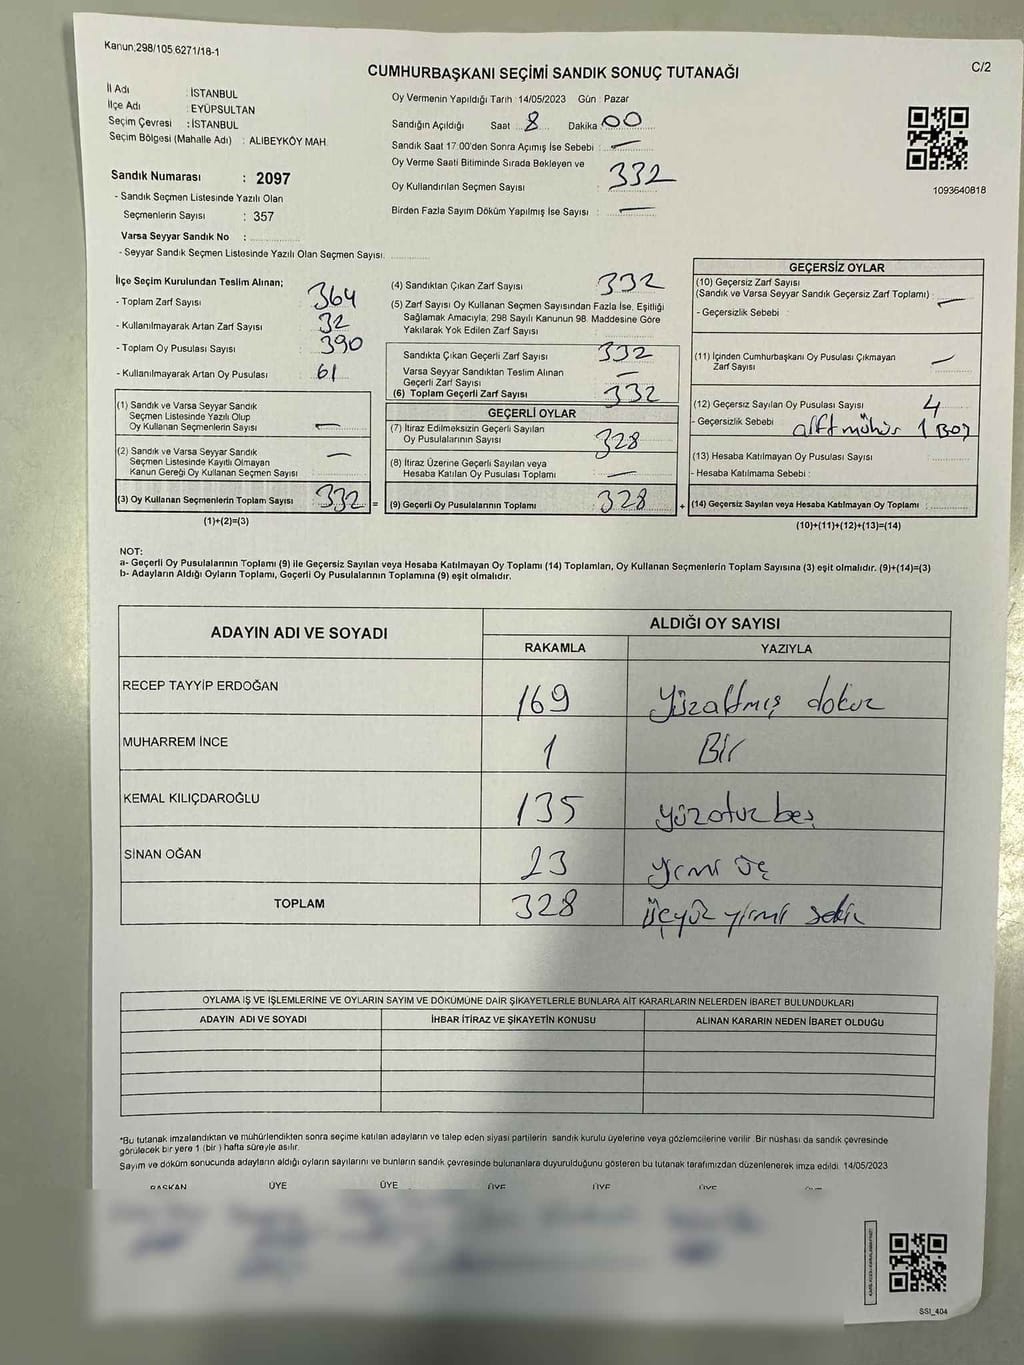 Kanun;298/105 6271/18-1
CUMHURBAŞKANI SEÇİMİ SANDIK SONUÇ TUTANAĞI
C/2
İl Adı : İSTANBUL
İlçe Adı : EYÜPSULTAN
Seçim Çevresi : İSTANBUL
Seçim Bölgesi (Mahalle Adı) : ALIBEYKÖY MAH.
Sandık Numarası : 2097
- Sandık Seçmen Listesinde Yazılı Olan
Seçmenlerin Sayısı : 357
Varsa Seyyar Sandık No :
- Seyyar Sandık Seçmen Listesinde Yazılı Olan Seçmen Sayısı:
Oy Vermenin Yapıldığı Tarih :14/05/2023 Gün : Pazar
Sandığın Açıldığı Saat 8 Dakika 00
Sandık Saat 17:00'den Sonra Açımış İse Sebebi : —
Oy Verme Saati Bitiminde Sırada Bekleyen ve
Oy Kullandırılan Seçmen Sayısı : 332
Birden Fazla Sayım Döküm Yapılmış İse Sayısı : —
1093640818
İlçe Seçim Kurulundan Teslim Alınan;
- Toplam Zarf Sayısı 364
- Kullanılmayarak Artan Zarf Sayısı 32
- Toplam Oy Pusulası Sayısı 390
- Kullanılmayarak Artan Oy Pusulası 61
(1) Sandık ve Varsa Seyyar Sandık
Seçmen Listesinde Yazılı Olup
Oy Kullanan Seçmenlerin Sayısı —
(2) Sandık ve Varsa Seyyar Sandık
Seçmen Listesinde Kayıtlı Olmayan
Kanun Gereği Oy Kullanan Seçmen Sayısı —
(3) Oy Kullanan Seçmenlerin Toplam Sayısı 332 =
(1)+(2)=(3)
(4) Sandıktan Çıkan Zarf Sayısı 332
(5) Zarf Sayısı Oy Kullanan Seçmen Sayısından Fazla İse, Eşitliği
Sağlamak Amacıyla; 298 Sayılı Kanunun 98. Maddesine Göre
Yakılarak Yok Edilen Zarf Sayısı :
Sandıkta Çıkan Geçerli Zarf Sayısı 332
Varsa Seyyar Sandıktan Teslim Alınan
Geçerli Zarf Sayısı —
(6) Toplam Geçerli Zarf Sayısı 332
GEÇERLİ OYLAR
(7) İtiraz Edilmeksizin Geçerli Sayılan
Oy Pusulalarının Sayısı 328
(8) İtiraz Üzerine Geçerli Sayılan veya
Hesaba Katılan Oy Pusulası Toplamı —
(9) Geçerli Oy Pusulalarının Toplamı 328 +
GEÇERSİZ OYLAR
(10) Geçersiz Zarf Sayısı
(Sandık ve Varsa Seyyar Sandık Geçersiz Zarf Toplamı) : —
- Geçersizlik Sebebi :
(11) İçinden Cumhurbaşkanı Oy Pusulası Çıkmayan
Zarf Sayısı —
(12) Geçersiz Sayılan Oy Pusulası Sayısı 4
- Geçersizlik Sebebi mühür 1 Boş
(13) Hesaba Katılmayan Oy Pusulası Sayısı
- Hesaba Katılmama Sebebi :
(14) Geçersiz Sayılan veya Hesaba Katılmayan Oy Toplamı :
(10)+(11)+(12)+(13)=(14)
NOT:
a- Geçerli Oy Pusulalarının Toplamı (9) ile Geçersiz Sayılan veya Hesaba Katılmayan Oy Toplamı (14) Toplamları, Oy Kullanan Seçmenlerin Toplam Sayısına (3) eşit olmalıdır. (9)+(14)=(3)
b- Adayların Aldığı Oyların Toplamı, Geçerli Oy Pusulalarının Toplamına (9) eşit olmalıdır.
ADAYIN ADI VE SOYADI ALDIĞI OY SAYISI
RAKAMLA YAZIYLA
RECEP TAYYİP ERDOĞAN 169 yüzaltmış dokuz
MUHARREM İNCE 1 Bir
KEMAL KILIÇDAROĞLU 135 yüzotuz beş
SİNAN OĞAN 23 yirmi üç
TOPLAM 328 üçyüz yirmi sekiz
OYLAMA İŞ VE İŞLEMLERİNE VE OYLARIN SAYIM VE DÖKÜMÜNE DAİR ŞİKAYETLERLE BUNLARA AİT KARARLARIN NELERDEN İBARET BULUNDUKLARI
ADAYIN ADI VE SOYADI İHBAR İTİRAZ VE ŞİKAYETİN KONUSU ALINAN KARARIN NEDEN İBARET OLDUĞU
*Bu tutanak imzalandıktan ve mühürlendikten sonra seçime katılan adayların ve talep eden siyasi partilerin sandık kurulu üyelerine veya gözlemcilerine verilir. Bir nüshası da sandık çevresinde
görülecek bir yere 1 (bir ) hafta süreyle asılır.
Sayım ve döküm sonucunda adayların aldığı oyların sayılarını ve bunların sandık çevresinde bulunanlara duyurulduğunu gösteren bu tutanak tarafımızdan düzenlenerek imza edildi. 14/05/2023
BAŞKAN ÜYE ÜYE ÜYE ÜYE ÜYE
SSI_404